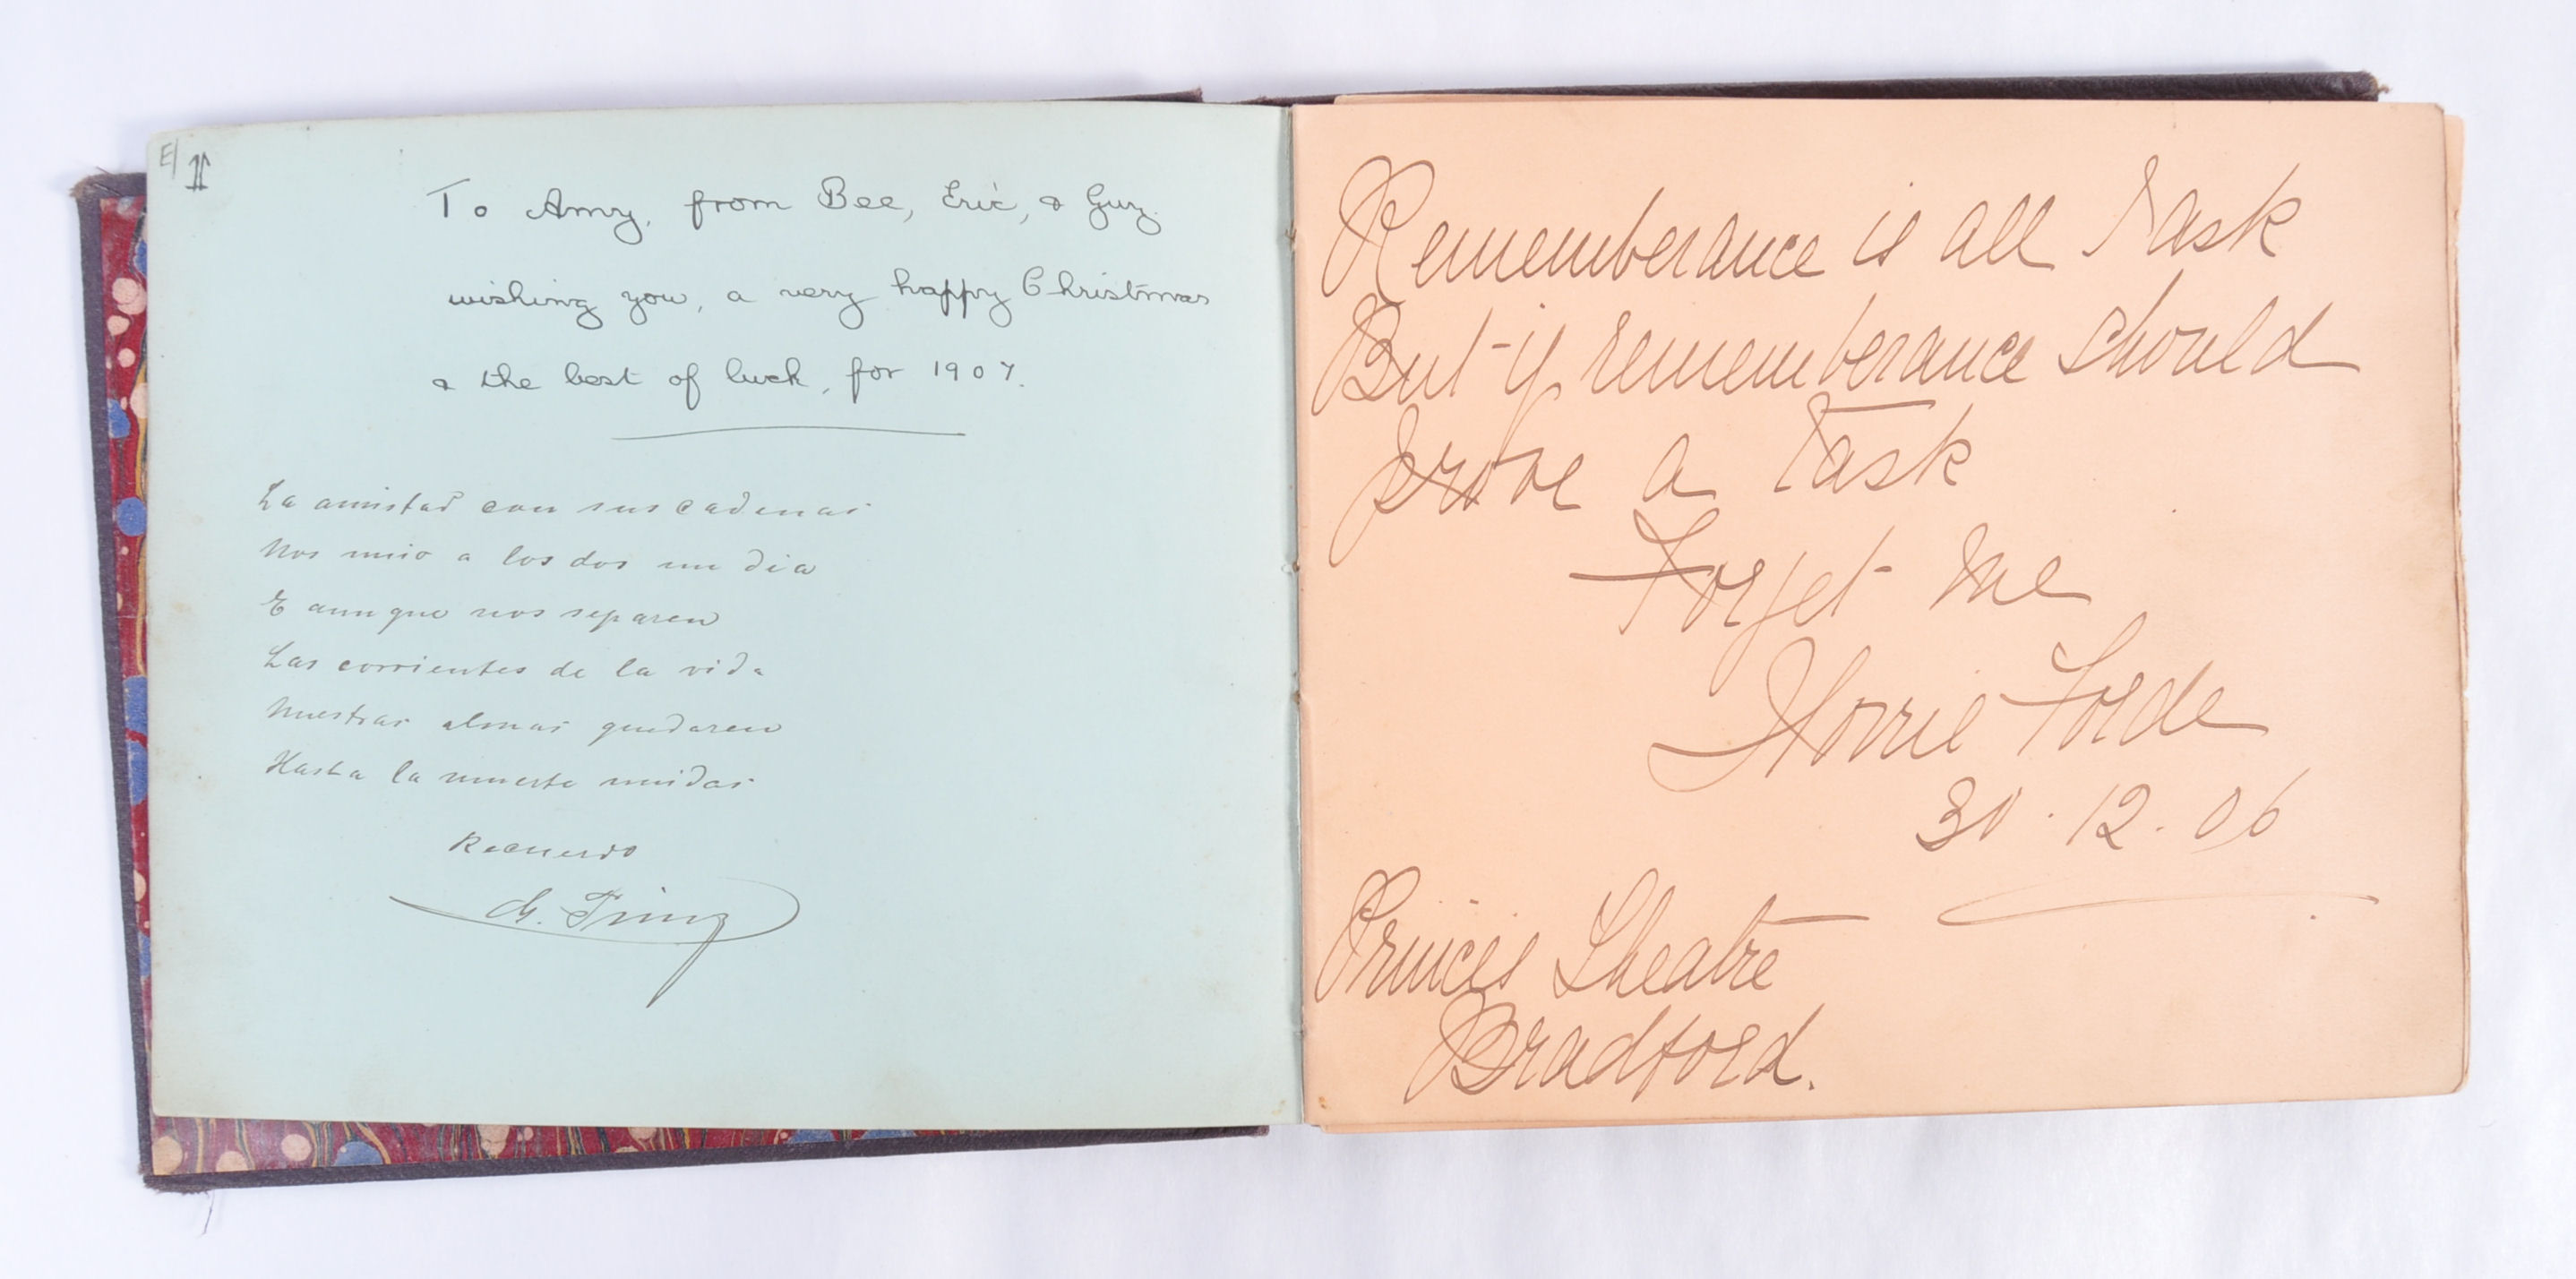 E/ 11
To Amy, from Bee, Eric, & Guy.
wishing you, a very happy Christmas
& the best of luck, for 1907.
La amistad con sus cadenas
Nos unio a los dos un dia
E aunque nos separen
Las corrientes de la vida
Nuestras almas quedaren
Hasta la muerte unidas
Recuerdo
G.
Rememberance is all I ask
But if rememberance should
prove a Task
Forget me
Florrie Forde
30.12.06
Princes Theatre
Bradford.